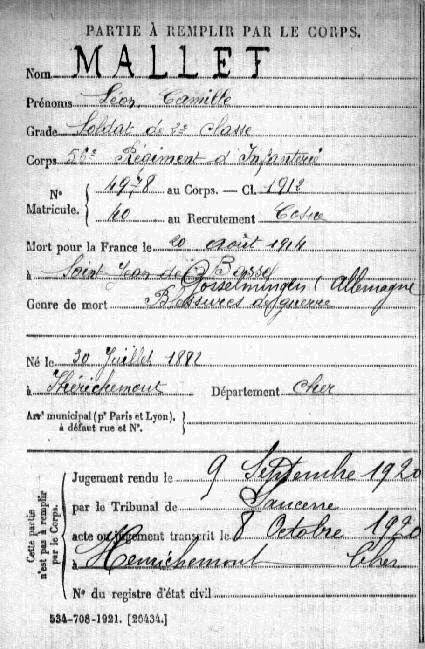 PARTIE À REMPLIR PAR LE CORPS.
Nom MALLET
Prénoms Léon Camille
Grade Soldat de 2e classe
Corps 56e Régiment d'Infanterie
N° Matricule. { 4978 au Corps. — Cl. 1912
40 au Recrutement Cosne
Mort pour la France le 20 août 1914
à Saint Jean de Bassel
Gosselmingen (Allemagne
Genre de mort Blessures de guerre
Né le 30 Juillet 1892
à Hérichemont Département Cher
Arrt municipal (pr Paris et Lyon), à défaut rue et N°. {
Cette partie n'est pas à remplir par le Corps.
Jugement rendu le 9 Septembre 1920
par le Tribunal de Sancerre
acte ou jugement transcrit le 8 Octobre 1920
à Henrichemont Cher
N° du registre d'état civil
534-708-1921. [26434.]